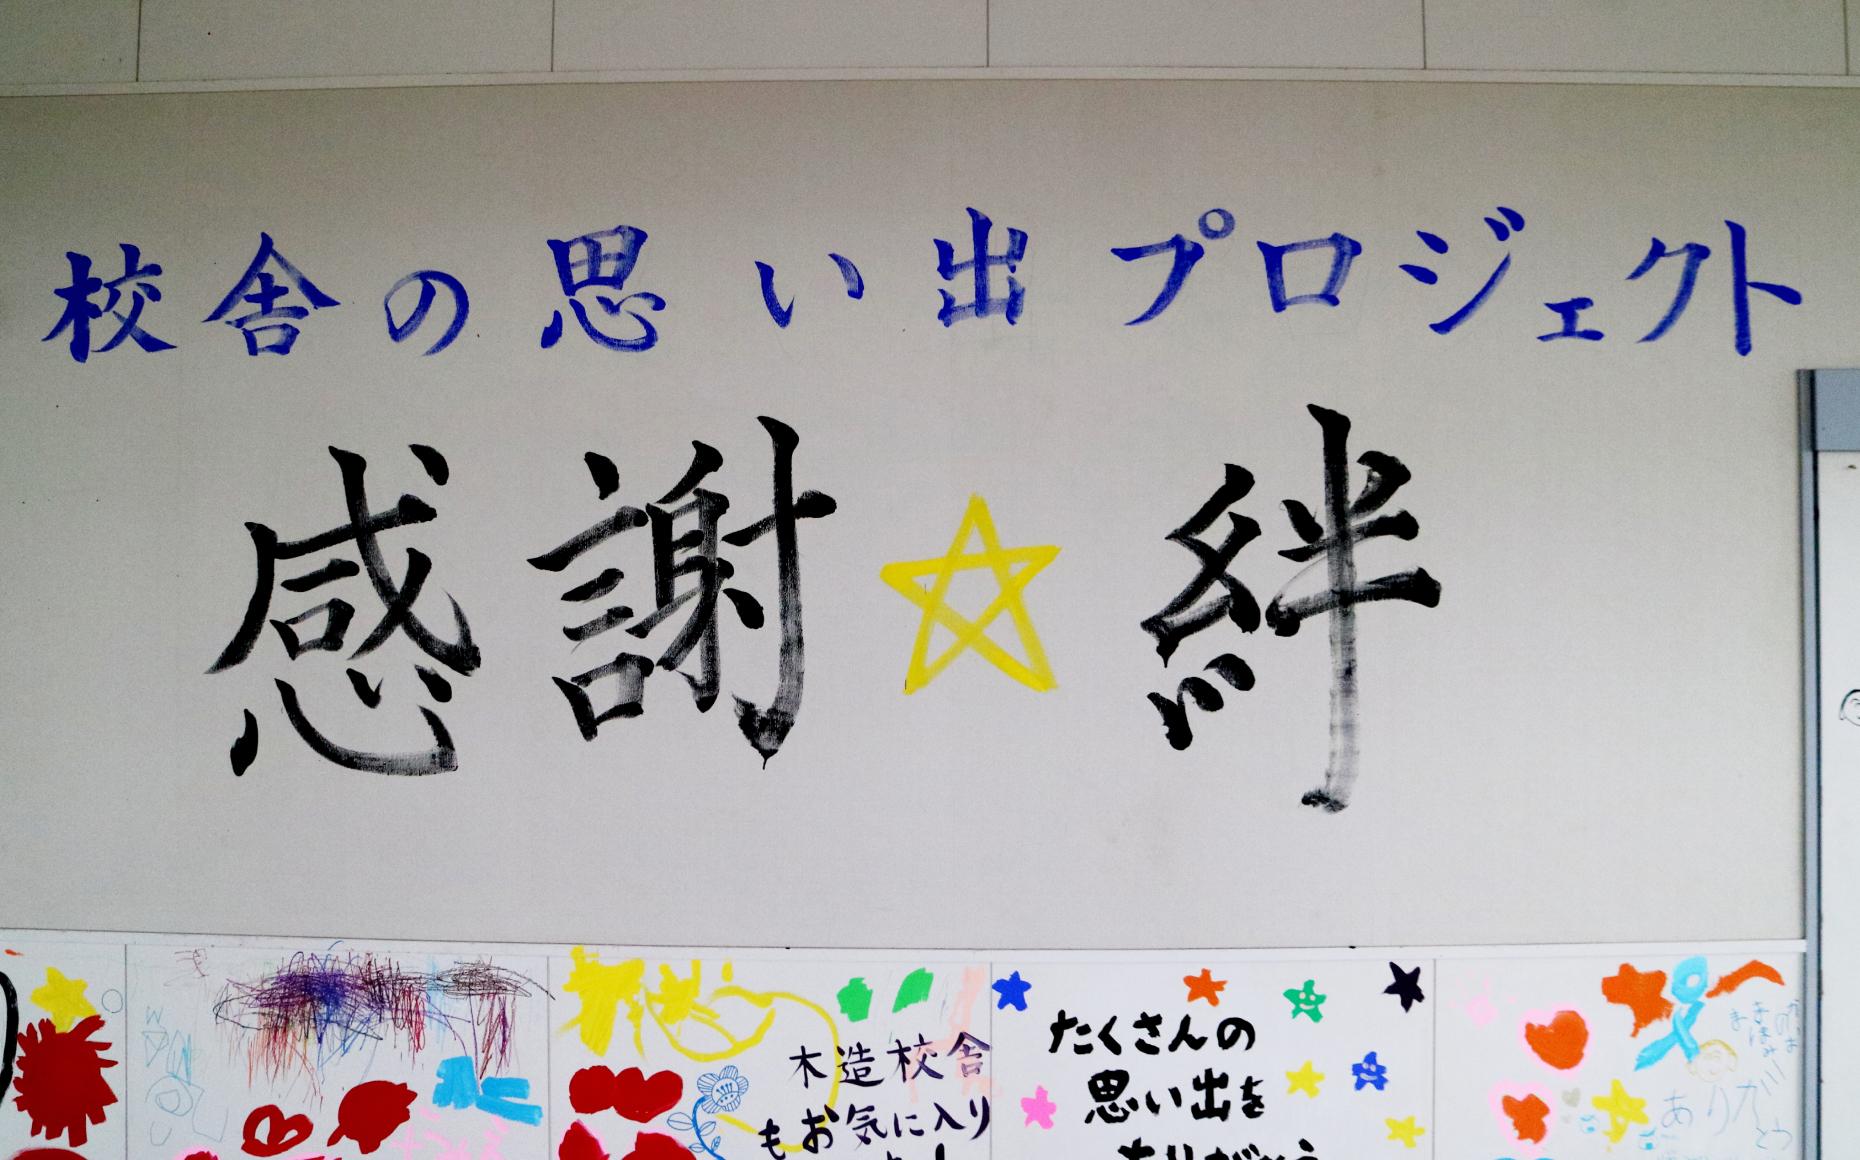 校舎の思い出プロジェクト
感謝☆絆
木造校舎
もお気に入り
たくさんの
思い出を
ありがとう